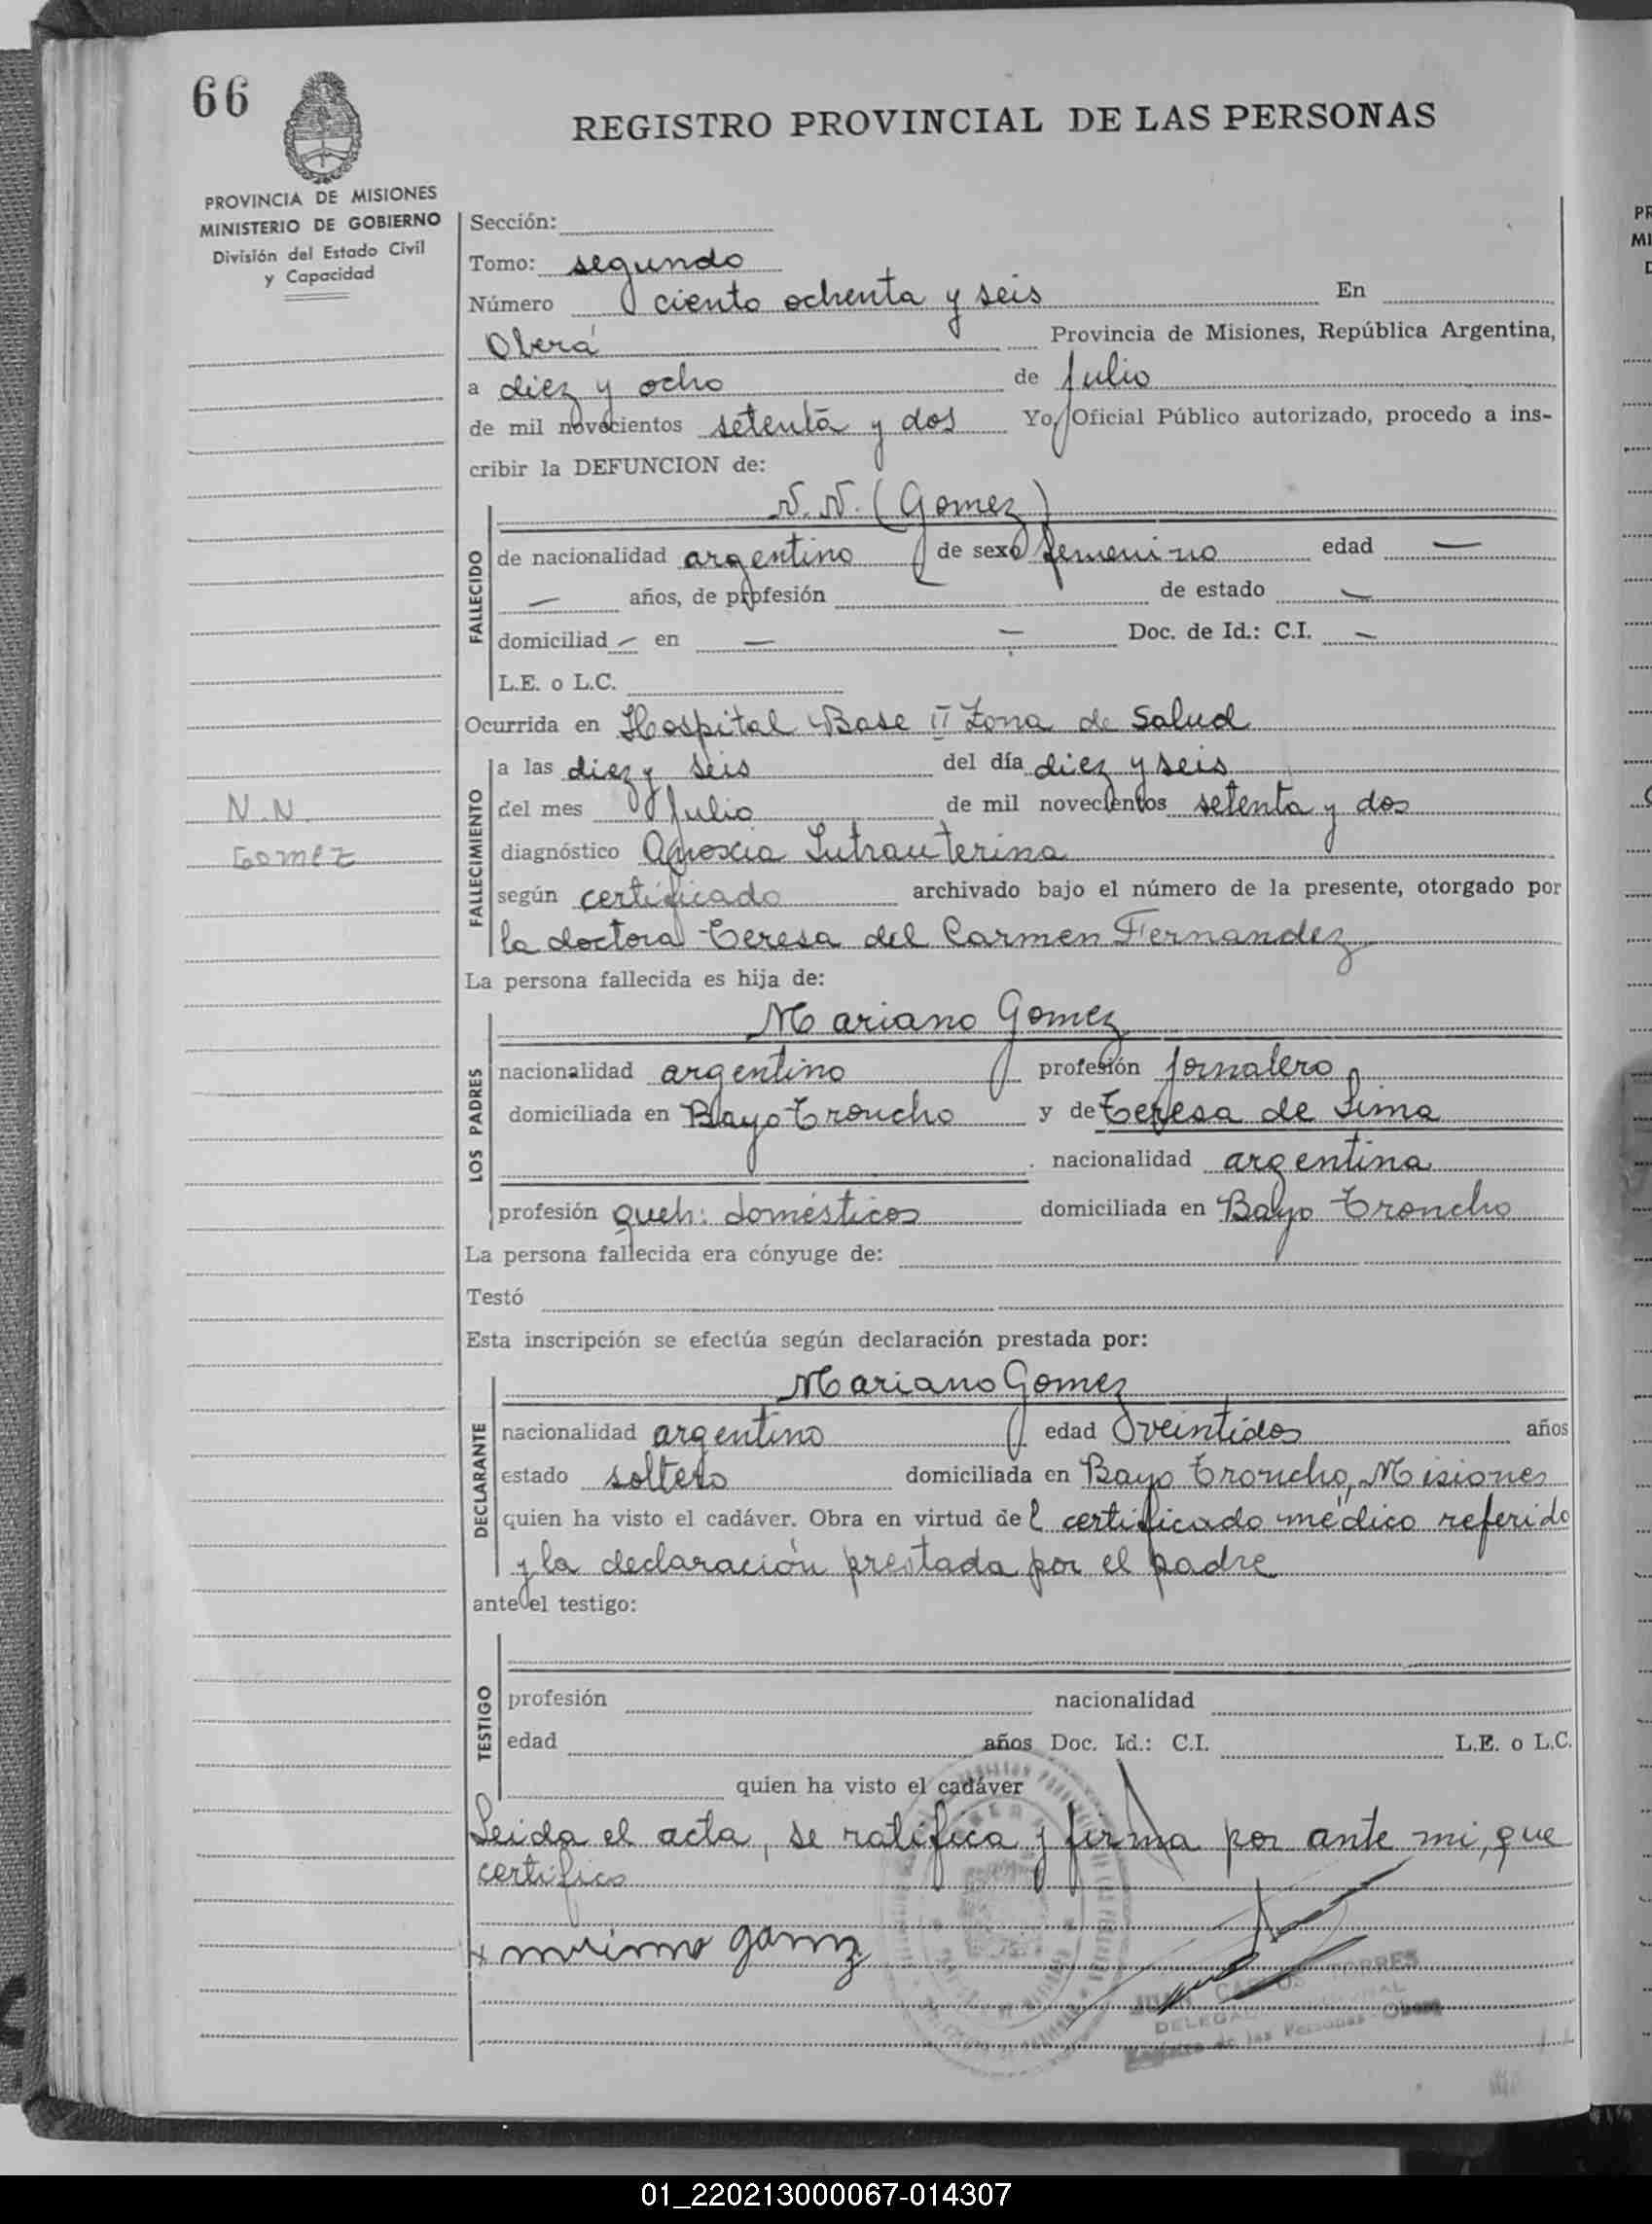 66
REGISTRO PROVINCIAL DE LAS PERSONAS
PROVINCIA DE MISIONES
MINISTERIO DE GOBIERNO
División del Estado Civil
y Capacidad
Sección:
Tomo: segundo
Número ciento ochenta y seis En
Oberá Provincia de Misiones, República Argentina,
a diez y ocho de Julio
de mil novecientos setenta y dos Yo, Oficial Público autorizado, procedo a ins-
cribir la DEFUNCION de:
N.N. (Gomez)
FALLECIDO
de nacionalidad argentino de sexo femenino edad —
— años, de profesión de estado —
domiciliad — en — — Doc. de Id.: C.I. —
L.E. o L.C.
Ocurrida en Hospital Base II Zona de Salud
FALLECIMIENTO
a las diez y seis del día diez y seis
del mes Julio de mil novecientos setenta y dos
N.N.
Gomez
diagnóstico Anoxia Intrauterina
según certificado archivado bajo el número de la presente, otorgado por
la doctora Teresa del Carmen Fernandez
La persona fallecida es hija de:
Mariano Gomez
LOS PADRES
nacionalidad argentino profesión Jornalero
domiciliada en Bayo Troncho y de Teresa de Lima
nacionalidad argentina
profesión queh: domésticos domiciliada en Bayo Troncho
La persona fallecida era cónyuge de:
Testó
Esta inscripción se efectúa según declaración prestada por:
Mariano Gomez
DECLARANTE
nacionalidad argentino edad veintidos años
estado soltero domiciliada en Bayo Troncho, Misiones
quien ha visto el cadáver. Obra en virtud del certificado médico referido
y la declaración prestada por el padre
ante el testigo:
TESTIGO
profesión nacionalidad
edad años Doc. Id.: C.I. L.E. o L.C.
quien ha visto el cadáver
Leida el acta, se ratifica y firma por ante mi, que
certifico
JUAN CARLOS TORRES
Personas - Oberá
01_220213000067-014307